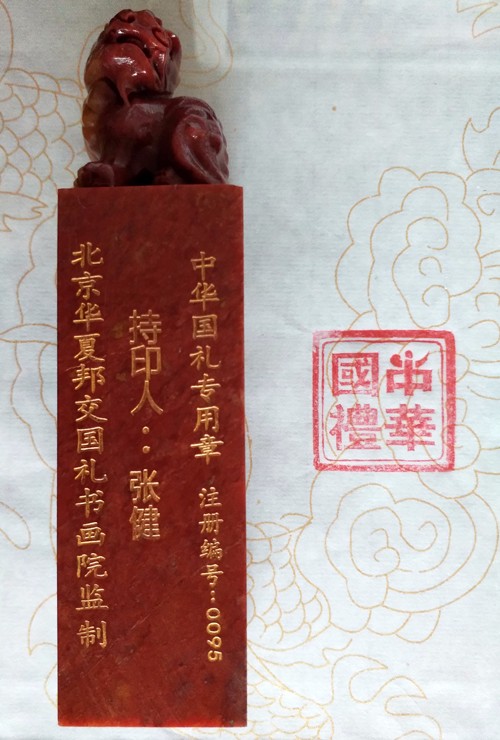 中华国礼专用章 注册编号：0095
持印人：张健
北京华夏邦交国礼书画院监制
中華
國禮